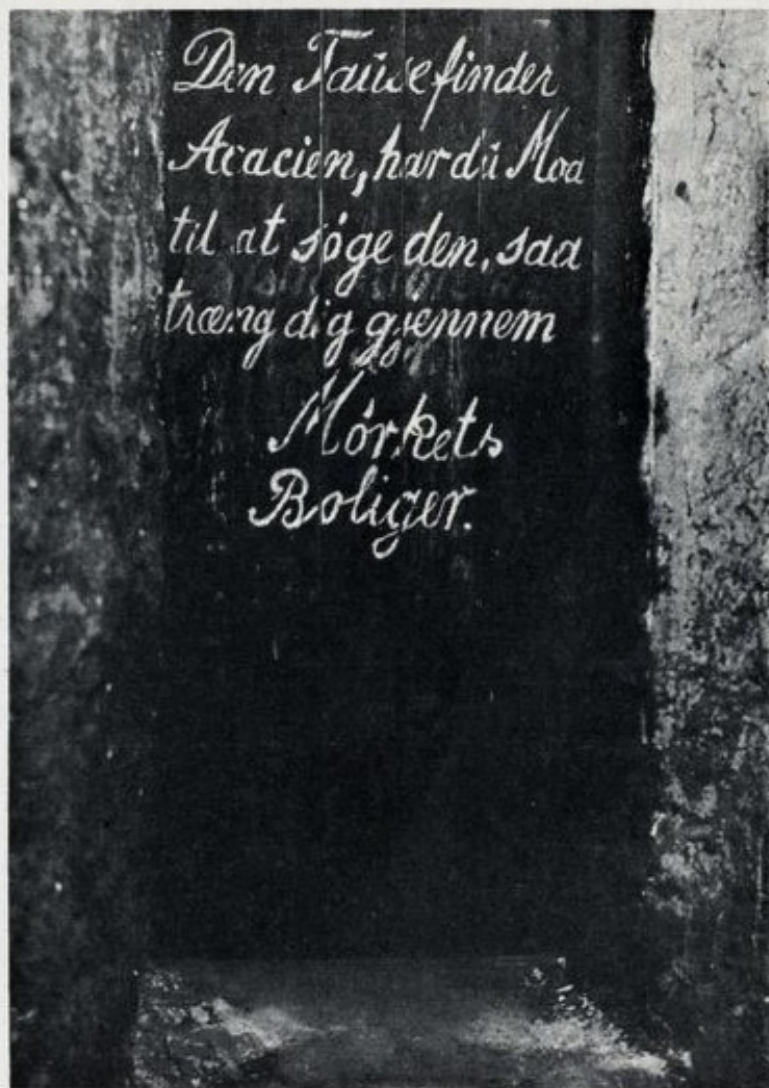 Den Tause finder
Acacien, har du Mod
til at søge den, saa
træng dig gjennem
Mørkets
Boliger.